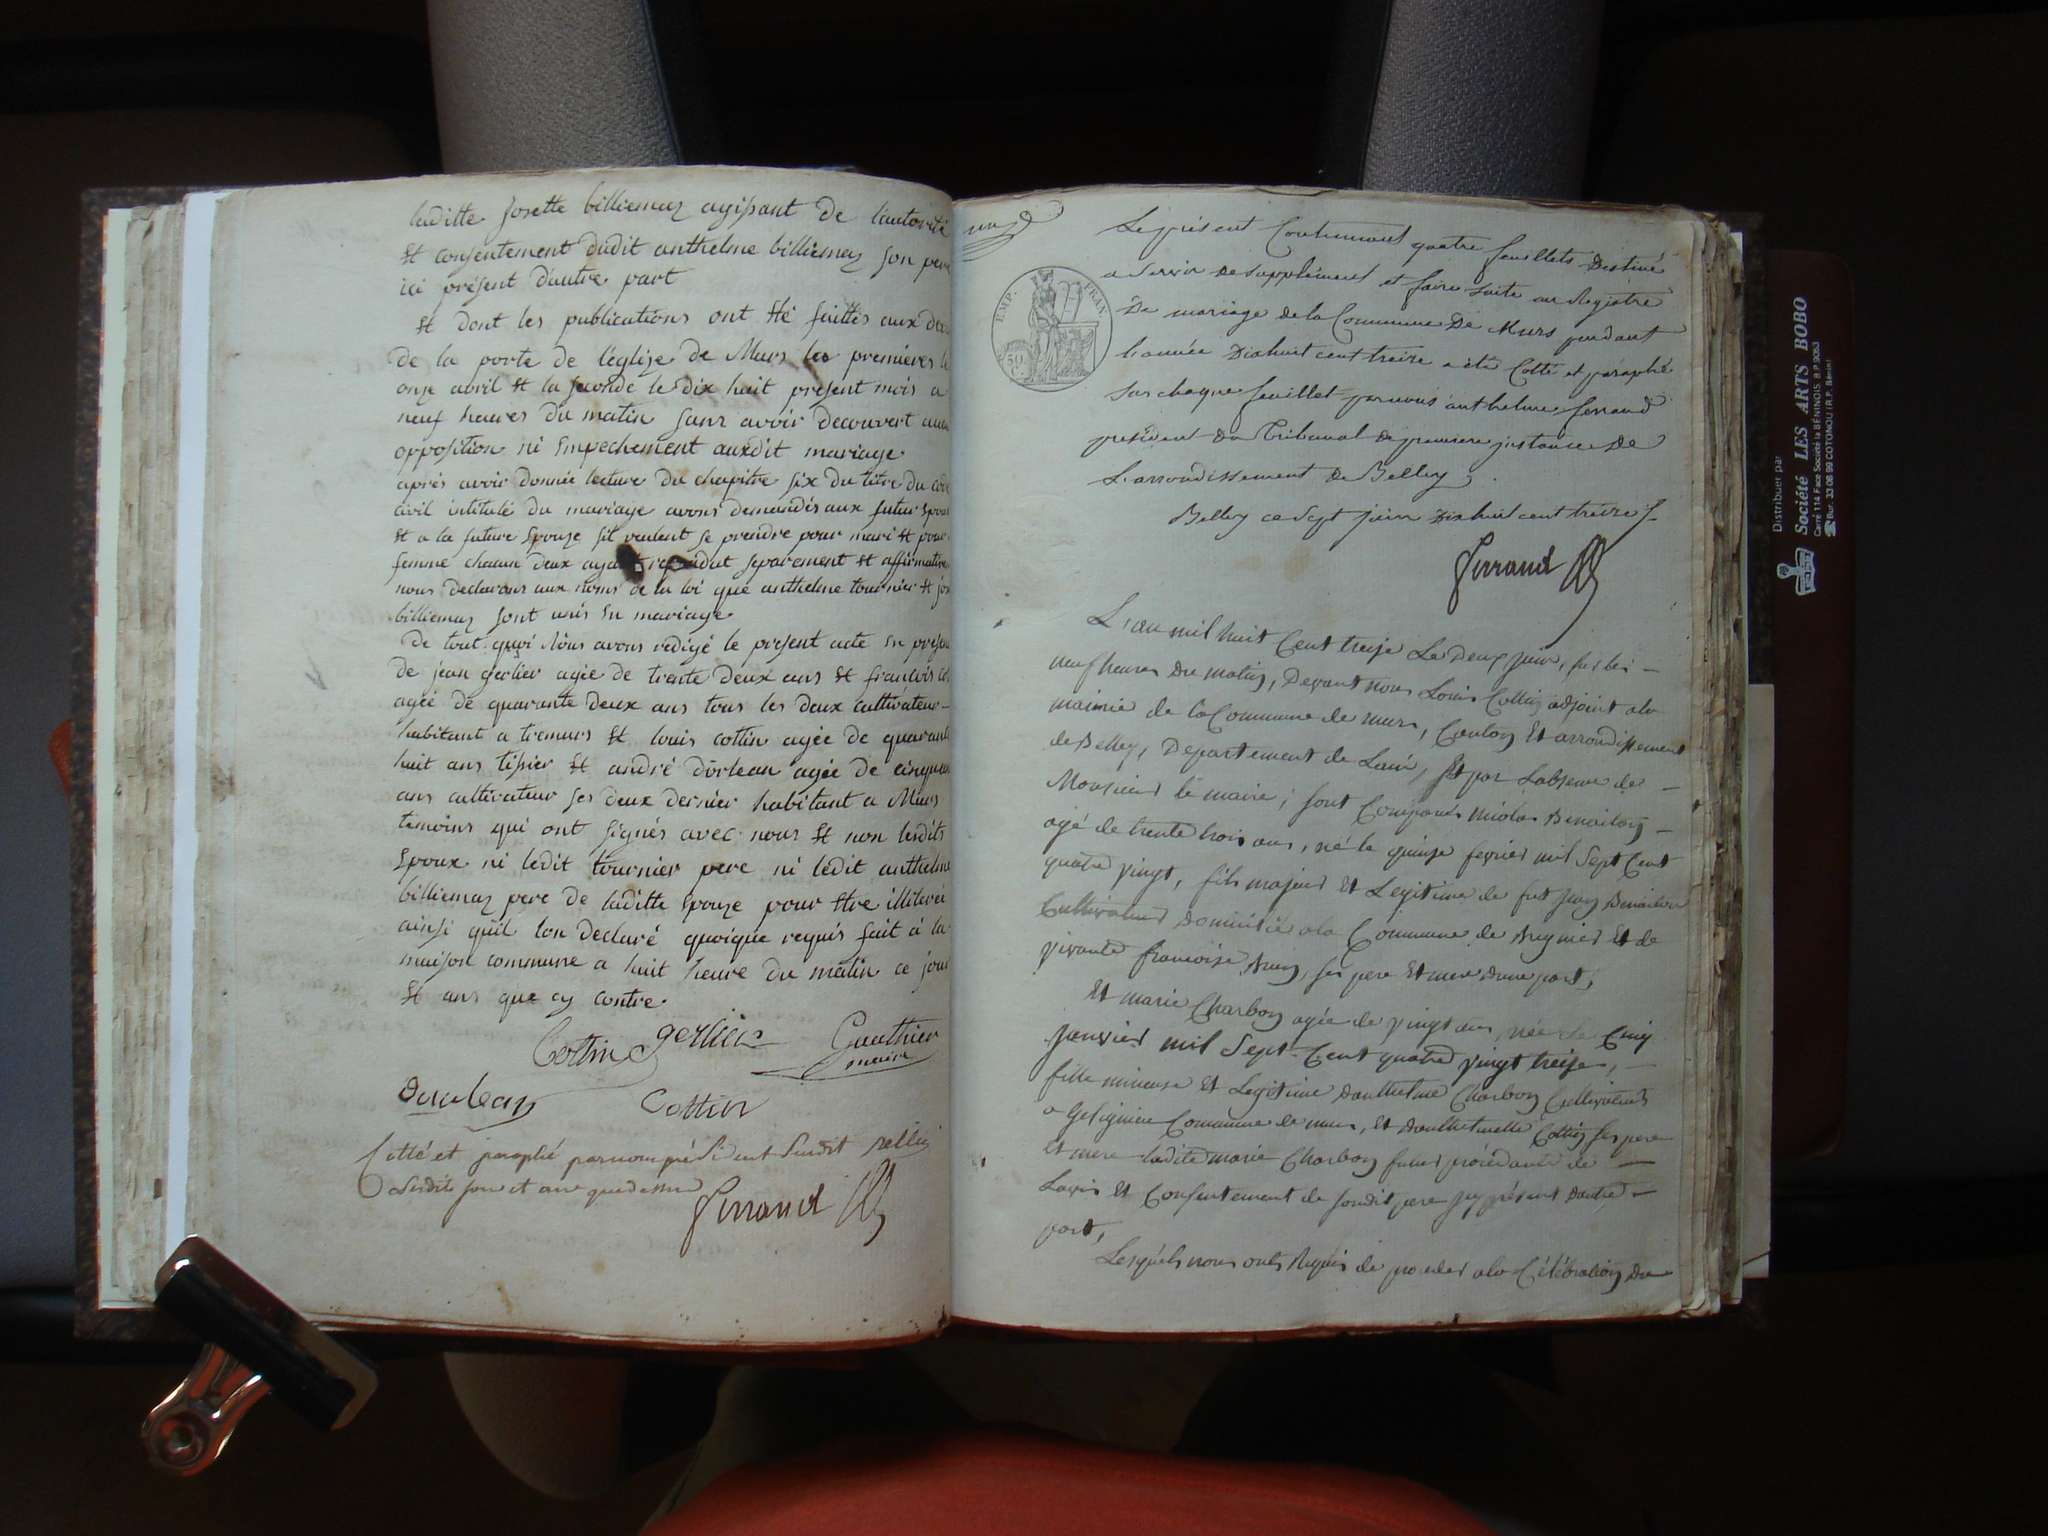 laditte Josette billiemaz agissant de lautorité
Et consentement dudit anthelme billiemaz son pere
ici présent dautre part
Et dont les publications ont Eté faittes aux de
de la porte de léglize de Murs les premieres le
onze avril Et la seconde le dix huit présent mois a
neuf heures du matin sans avoir decouvert aucu
opposition ni Empechement auxdit mariage
après avoir donnée lecture du chapitre six du titre du code
civil intitulé du mariage avons demandés aux futur Epoux
Et a la future Epouze sil veulent se prendre pour mari Et pour
femme chacun deux ayant repondut separement Et affirmative
nous declarons aux noms de la loi que anthelme tournier Et jos
billiemaz sont unis En mariage
De tout quoi Nous avons redigé le présent acte En présen
de jean gerlier agée de trente deux ans Et francois
agée de quarante deux ans tous les deux cultivateur
habitant a tremurs Et louis cottin agée de quarante
huit ans tissier Et andré dorlean agée de cinquan
ans cultivateur ses deux dernier habitant a Murs
temoins qui ont signés avec nous Et non lesdits
Epoux ni ledit tournier pere ni ledit anthelme
billiemaz pere de laditte Epouze pour Etre illiterée
ainsi quil lon declaré quoique requis fait à la
maison commune a huit heure du matin ce jour
Et ans que cy contre
Cottin gerlier Gauthier
maire
Dorlean Cottin
Cotté et paraphé par nous président susdit
lesdits jour et an que dessus
Ferrand
Le présent Contenant quatre feuillets Destiné
a Servir de Supplément et faire Suite au Registre
De mariage de la Commune De Murs pendant
l'année Dixhuit cent treize a été Cotté et paraphé
Sur chaque feuillet par nous anthelme ferrand
président du Tribunal de premiere instance De
L'arrondissement de Belley
Belley ce Sept juin Dixhuit cent treize
Ferrand
EMP. FRAN.
50 C.
L'an mil huit Cent treize Le Deux juin, sur les
neuf heures du matin, Devant nous Louis Cottin adjoint ala
mairie de la Commune de murs, Canton Et arrondissement
de Belley, Département de Lain, Et par Labsence de
Monsieur le maire; sont Comparus nicolas Benaiton
agé de trente trois ans, né le quinze fevrier mil Sept Cent
quatre vingt, fils majeur Et Legitime de fut jean Benaiton
Cultivateur Domicilié ala Commune de Et de
vivante francoise, ses pere Et mere Dune part,
Et marie Charbon agée de vingt ans, née le Cinq
janvier mil Sept Cent quatre vingt treize,
fille mineure Et Legitime Danthelme Charbon Cultivateur
a Gesigneu Commune de murs, Et Danthelmette Cottin ses pere
Et mere ladite marie Charbon future procédante de
Lavis Et Consentement de sondit pere jcy présent Dautre
part,
Lesquels nous onts Requis de proceder ala Célébration du
Distribuer par
Société LES ARTS BOBO
Carré 114 Face Société la BENINOIS. B.P. 9053
Bur. 33 08 99 COTONOU (R.P. Bénin)